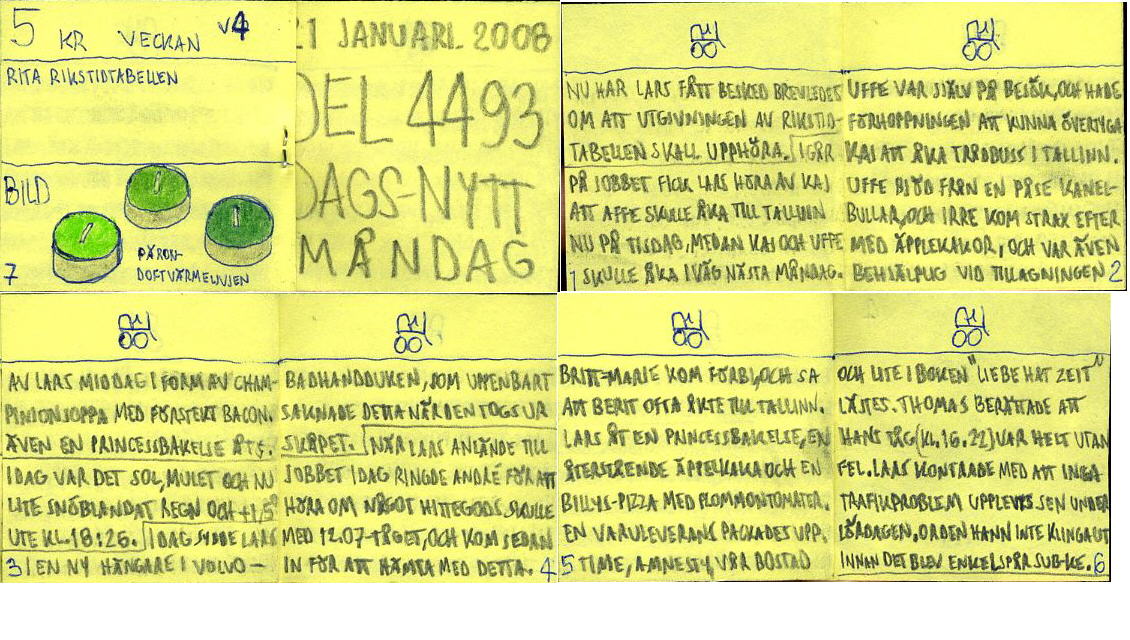 5 KR VECKAN V4
RITA RIKSTIDTABELLEN
BILD
PÄRON-
DOFTVÄRMELJUSEN
7
21 JANUARI 2008
DEL 4493
DAGS-NYTT
MÅNDAG
NU HAR LARS FÅTT BESKED BREVLEDES
OM ATT UTGIVNINGEN AV RIKSTID-
TABELLEN SKALL UPPHÖRA. IGÅR
PÅ JOBBET FICK LARS HÖRA AV KAJ
ATT AFFE SKULLE ÅKA TILL TALLINN
NU PÅ TISDAG, MEDAN KAJ OCH UFFE
1 SKULLE ÅKA IVÄG NÄSTA MÅNDAG.
UFFE VAR SJÄLV PÅ BESÖK, OCH HADE
FÖRHOPPNINGEN ATT KUNNA ÖVERTYGA
KAJ ATT ÅKA TRÅDBUSS I TALLINN.
UFFE BJÖD FRÅN EN PÅSE KANEL-
BULLAR, OCH IRRE KOM STRAX EFTER
MED ÄPPLEKAKOR, OCH VAR ÄVEN
BEHJÄLPLIG VID TILLAGNINGEN 2
AV LARS MIDDAG I FORM AV CHAM-
PINJONSOPPA MED FÖRSTEKT BACON.
ÄVEN EN PRINCESSBAKELSE ÅTS.
IDAG VAR DET SOL, MULET OCH NU
LITE SNÖBLANDAT REGN OCH +1,5°
UTE KL. 18:26. IDAG SYDDE LARS
3 I EN NY HÄNGARE I VOLVO-
BADHANDDUKEN, SOM UPPENBART
SAKNADE DETTA NÄR DEN TOGS UR
SKÅPET. NÄR LARS ANLÄNDE TILL
JOBBET IDAG RINGDE ANDRÉ FÖR ATT
HÖRA OM NÅGOT HITTEGODS, SKULLE
MED 12.07-TÅGET, OCH KOM SEDAN
IN FÖR ATT HÄMTA MED DETTA. 4
BRITT-MARIE KOM FÖRBI, OCH SA
ATT BERIT OFTA ÅKTE TILL TALLINN.
LARS ÅT EN PRINCESSBAKELSE, EN
ÅTERSTÅENDE ÄPPELKAKA OCH EN
BILLYS-PIZZA MED PLOMMONTOMATER.
EN VARULEVERANS PACKADES UPP.
5 TIME, AMNESTY, VÅR BOSTAD
OCH LITE I BOKEN "LIEBE HAT ZEIT"
LÄSTES. THOMAS BERÄTTADE ATT
HANS TÅG (KL. 16.22) VAR HELT UTAN
FEL. LARS KONTRADE MED ATT INGA
TRAFIKPROBLEM UPPLEVTS SEN UNDER
LÖRDAGEN. ORDEN HANN INTE KLINGA UT
INNAN DET BLEV ENKELSPÅR SUB-KE. 6